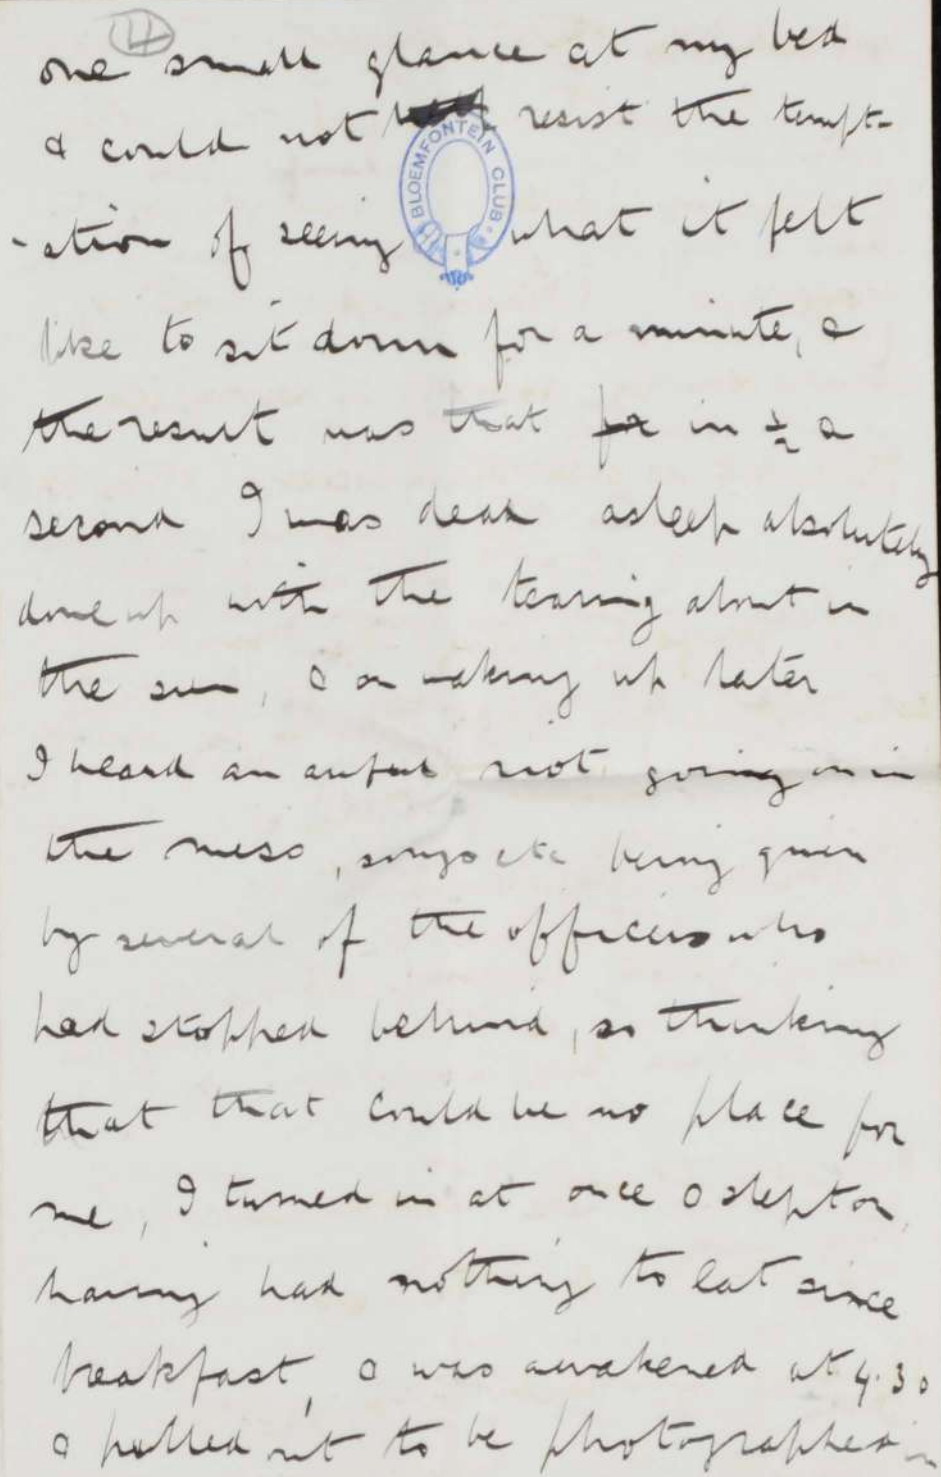 4
one small glance at my bed
& could not resist the tempt-
BLOEMFONTEIN CLUB
-ation of seeing what it felt
like to sit down for a minute, &
the result was that for in ½ a
second I was dead asleep absolutely
done up with the tearing about in
the sun, & on waking up later
I heard an awful riot going on in
the mess, songs etc being given
by several of the officers who
had stopped behind, so thinking
that that could be no place for
me, I turned in at once & slept on,
having had nothing to eat since
breakfast, & was awakened at 4.30
& pulled out to be photographed in